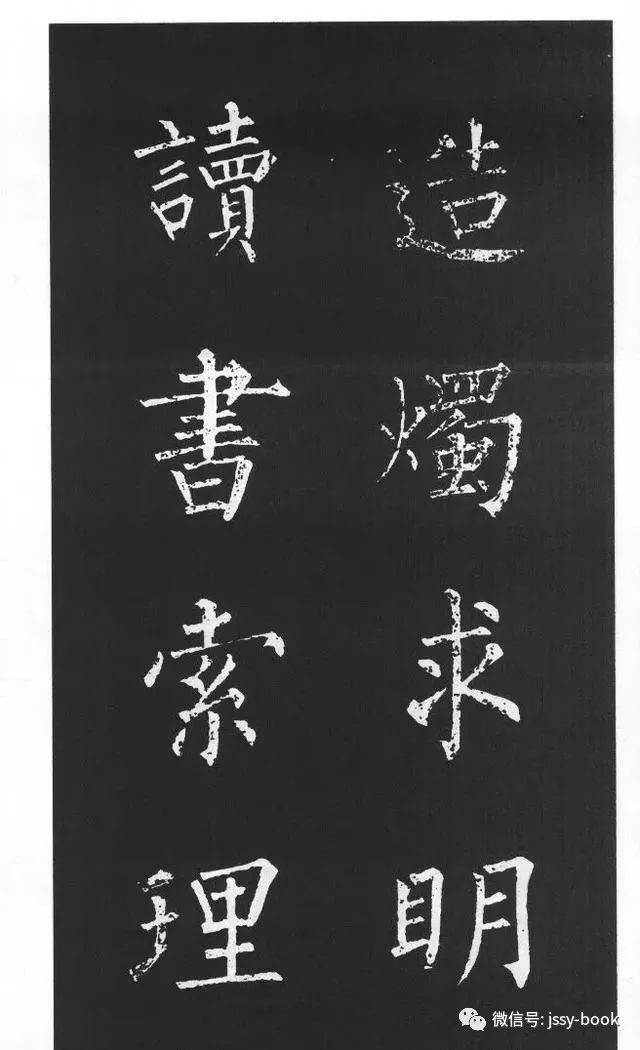 造燭求明
讀書索理
微信号: jssy-book